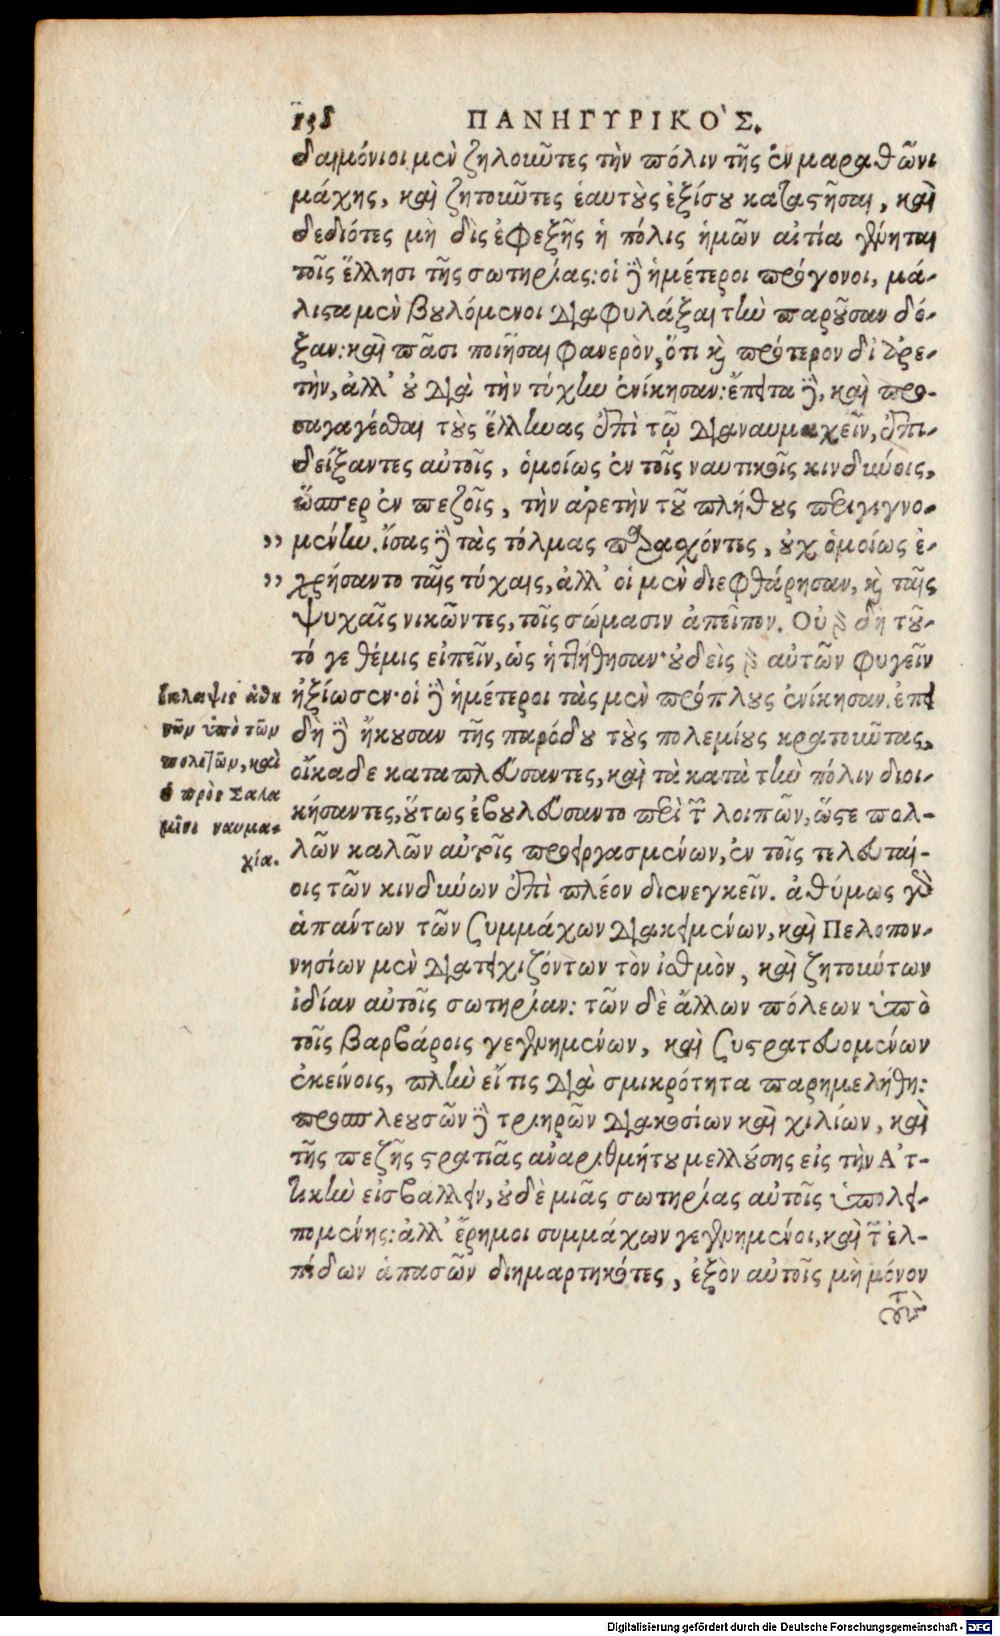 138 ΠΑΝΗΓΥΡΙΚΟ'Σ.
δαιμόνιοι μὲν ζηλοῦντες τὴν πόλιν τῆς ἐν μαραθῶνι
μάχης, καὶ ζητοῦντες ἑαυτοὺς ἐξίσου καταστῆσαι, καὶ
δεδιότες μὴ δὶς ἐφεξῆς ἡ πόλις ἡμῶν αἰτία γένηται
τοῖς ἕλλησι τῆς σωτηρίας: οἱ δὲ ἡμέτεροι πρόγονοι, μά-
λιστα μὲν βουλόμενοι διαφυλάξαι τὴν παροῦσαν δό-
ξαν: καὶ πᾶσι ποιῆσαι φανερὸν, ὅτι καὶ πρότερον δι' ἀρε-
τὴν, ἀλλ' οὐ διὰ τὴν τύχην ἐνίκησαν: ἔπειτα δὲ, καὶ προ-
σαγαγέσθαι τοὺς ἕλληνας ἐπὶ τῷ διαναυμαχεῖν, ἐπι-
δείξαντες αὐτοῖς, ὁμοίως ἐν τοῖς ναυτικοῖς κινδύνοις,
ὥσπερ ἐν πεζοῖς, τὴν ἀρετὴν τοῦ πλήθους περιγιγνο-
,, μένην. ἴσας δὲ τὰς τόλμας παρασχόντες, οὐχ ὁμοίως ἐ-
,, χρήσαντο ταῖς τύχαις, ἀλλ' οἱ μὲν διεφθάρησαν, καὶ ταῖς
ψυχαῖς νικῶντες, τοῖς σώμασιν ἀπεῖπον. Οὐ γὰρ δὴ τοῦ-
τό γε θέμις εἰπεῖν, ὡς ἡττήθησαν· οὐδεὶς γὰρ αὐτῶν φυγεῖν
ἠξίωσεν· οἱ δὲ ἡμέτεροι τὰς μὲν πρόπλους ἐνίκησαν. ἐπει
δὴ δὲ ἤκουσαν τῆς παρόδου τοὺς πολεμίους κρατοῦντας,
οἴκαδε καταπλεύσαντες, καὶ τὰ κατὰ τὴν πόλιν διοι-
κήσαντες, οὕτως ἐβουλεύσαντο περὶ τῶν λοιπῶν, ὥστε πολ-
λῶν καλῶν αὐτοῖς προειργασμένων, ἐν τοῖς τελευταί-
οις τῶν κινδύνων ἐπὶ πλέον διενεγκεῖν. ἀθύμως γὰρ
ἁπάντων τῶν συμμάχων διακειμένων, καὶ Πελοπον-
νησίων μὲν διατειχιζόντων τὸν ἰσθμὸν, καὶ ζητούντων
ἰδίαν αὐτοῖς σωτηρίαν: τῶν δὲ ἄλλων πόλεων ὑπὸ
τοῖς βαρβάροις γεγενημένων, καὶ συστρατευομένων
ἐκείνοις, πλὴν εἴ τις διὰ σμικρότητα παρημελήθη:
προσπλευσῶν δὲ τριηρῶν διακοσίων καὶ χιλίων, καὶ
τῆς πεζῆς στρατιᾶς ἀναριθμήτου μελλούσης εἰς τὴν Ἀτ-
τικὴν εἰσβαλλειν, οὐδὲ μιᾶς σωτηρίας αὐτοῖς ὑπολει-
πομένης: ἀλλ' ἔρημοι συμμάχων γεγενημένοι, καὶ τῶν ἐλ-
πίδων ἁπασῶν διημαρτηκότες, ἐξὸν αὐτοῖς μὴ μόνον
τοὺς
ἔκλειψις ἀθη
νῶν ὑπὸ τῶν
πολιτῶν, καὶ
ἡ πρὸς Σαλα
μῖνι ναυμα-
χία.
Digitalisierung gefördert durch die Deutsche Forschungsgemeinschaft - DFG